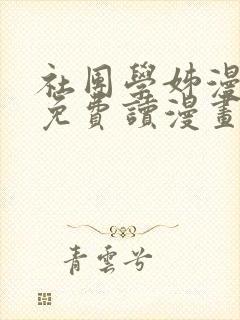 社团學姊漫
免費讀漫畫
青雲兮